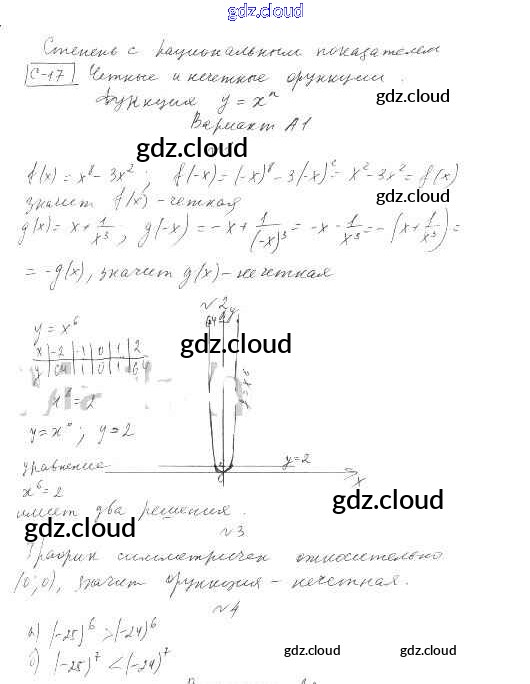 gdz.cloud
Степень с рациональным показателем
С-17 Четные и нечетные функции.
gdz.cloud
Функция y = xⁿ
Вариант А1
gdz.cloud
f(x) = x⁸ - 3x²; f(-x) = (-x)⁸ - 3(-x)² = x² - 3x² = f(x)
значит f(x) - четная
g(x) = x + 1/x³, g(-x) = -x + 1/(-x)³ = -x - 1/x³ = -(x + 1/x³) =
= -g(x), значит g(x) - нечетная
№2
y = x⁶
x -2 -1 0 1 2
y 64 1 0 1 64
64 y
gdz.cloud
y = x⁶
y = 2
y=2
уравнение
x
x⁶ = 2
имеет два решения.
gdz.cloud
gdz.cloud
№3
График симметричен относительно
(0;0), значит функция - нечетная.
№4
а) (-25)⁶ > (-24)⁶
б) (-25)⁷ < (-24)⁷
gdz.cloud
gdz.cloud